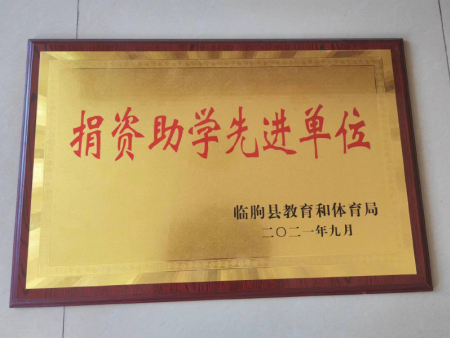 捐资助学先进单位
临朐县教育和体育局
二〇二一年九月